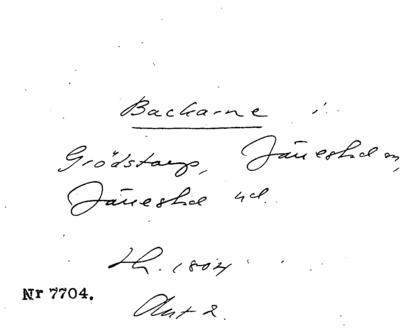 Backarne i
Grödstorp, Järrestad sn,
Järrestad hd.
Lh. 1804
Nr 7704.
Akt 2.